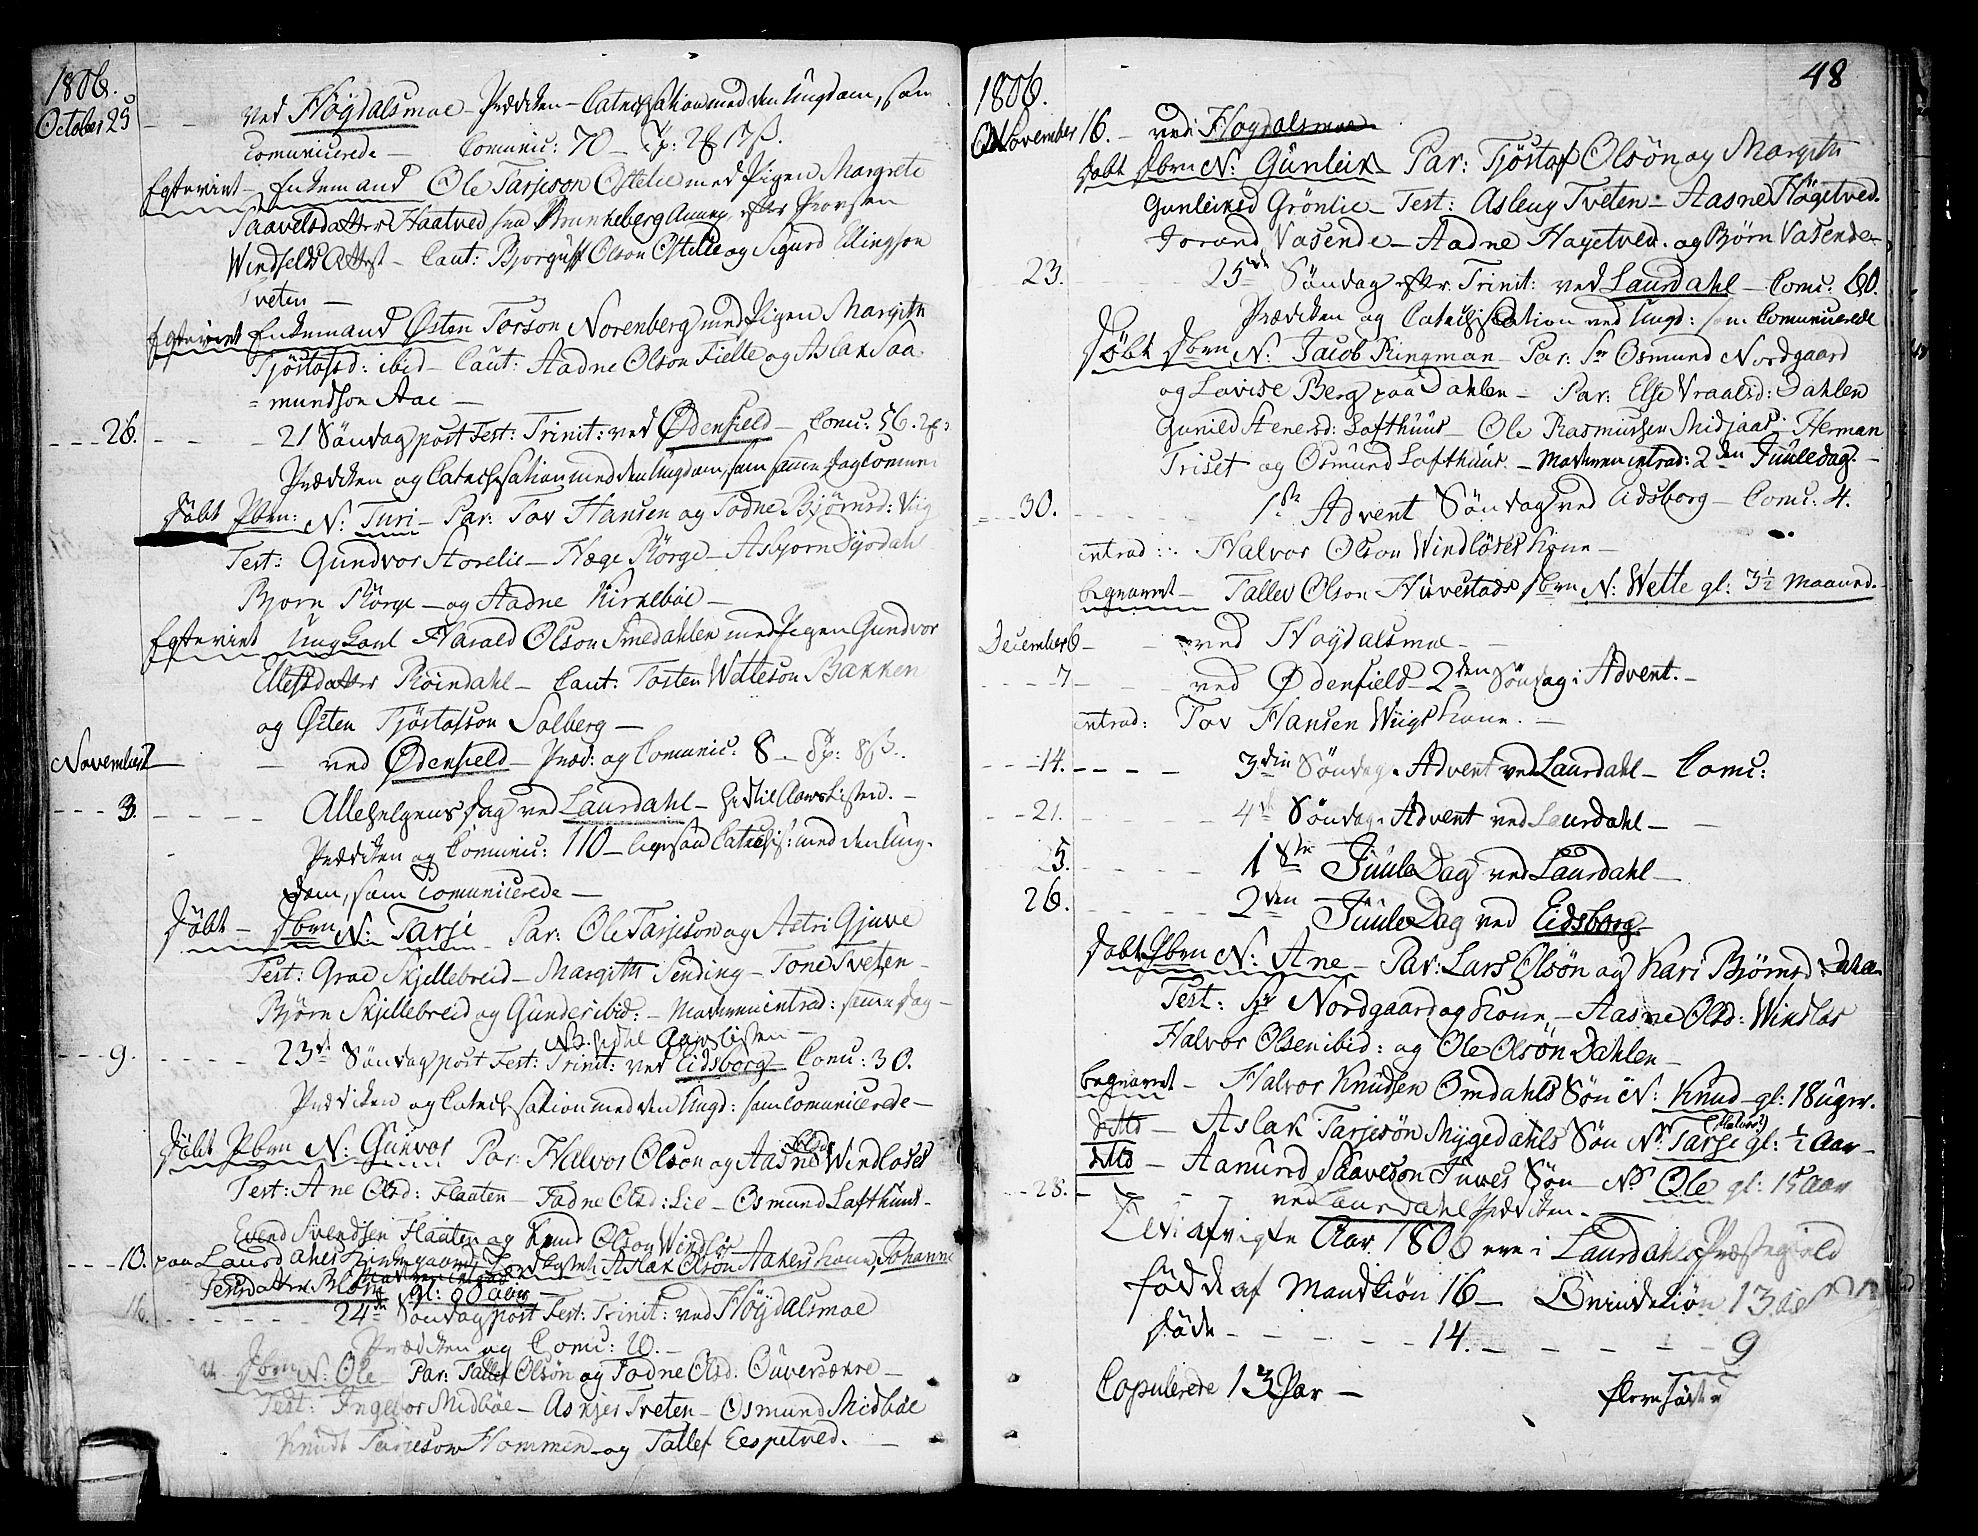 1806.
October 25 ved Høydalsmoe – Prædiken – Catechisation med den Ungdom, som
Comunicerede – Comunic: 70 –
Egteviet – Enkemand Ole Tarjeson Oftelie med Pigen Margrete
Saavelsdatter Haatved fra Brunkeberg Annex, efter Provsten
Windfelds Attest – Caut: Bjorguff Olson Oftelie og Sigurd Elingson
Tveten –
Egteviet Enkemand Østen Torson Norenberg med Pigen Margith
Tjøstafsd: ibid – Caut: Aadne Olson Fielle og Aslak Saa-
=mundson Aae –
26. 21 Søndag post Fest: Trinit: ved Ødenfield – Comu: 56.
Prædiken og Catechisation med den Ungdom, som samme dag Comuni
Døbt Pbrn: N: Turi – Par: Tov Hansen og Todne Bjørnsd: Viig
Test: Gundvor Storelie – Hæge Rørge – Asbjorn
Bjorn Rørge – og Aadne Kirkebøe –
Egteviet Ung Karl Harald Olson Smedahlen med Pigen Gundvor
Ellefsdatter Røindahl – Caut: Tosten Wetleson Bakken
og Østen Tjøstolsson Solberg –
November 2 – ved Ødenfield – Præd: og Comunic: 8 –
3. Allehelgens dag ved Laurdahl –
Prædiken og Comunic: 110 – ligesaa Catechis: med den Ung-
dom, som Comunicerede –
Døbt – Dbrn N: Tarje – Par: Ole Tarjeson og Astri Gjuve
Test: Groe Skjellebreid – Margith Tending – Tone Tveten –
Bjørn Skjellebreid og Gunder ibid: – Moderen introd: samme dag –
9. 23de Søndag post Fest: Trinit: ved Eidsborg – Comu: 30.
Prædiken og Catechisation med den Ungd: som Comunicerede –
Døbt Pbrn N: Gunvor Par: Halvor Olson og Aasne Olsd: Windloses
Test: Ane Olsd: Flaaten – Todne Olsd: Lie – Osmund Lofthuus –
Evend Svendsen Flaaten og Knud Olson Windløs
10. paa Laurdahls Kirkegaard Aslak Olsøn Aakers Kone, Johanne
gl: 60 aar –
16. 24de Søndag post Fest: Trinit: ved Høydalsmoe
Prædiken og Comu: 20. –
Dbrn N: Ole Par: Tallef Olsøn og Todne Olsd: Ouversækre –
Test: Ingebor Midbøe – Asbjer Tveten – Osmund Midbøe
Knudt Tarjeson Hommen og Tallef Eespetved. –
48
1806.
November 16. – ved Høydalsmoe
Døbt Dbrn N: Gunleik Par: Tjøstaf Olsøn og Margith
Gunleiksd Grönlie – Test: Asleug Tveten – Aasne Høgetved.
Jorand Vasende – Aadne Høgetved. og Bjørn Vasende –
23. 25de Søndag efter Trinit: ved Laurdahl – Comu: 60.
Prædiken og Catechisation ved Ungd: som Comunicerede
Døbt Dbrn N: Jacob Ringman – Par: Sr Osmund Nordgaard
og Lovise Berg paa Dahlen – Par: Else Vraalsd: Dahlen
Gunild Stenersd: Lofthuus – Ole Rasmussen Midjaas – Herman
Triset og Osmund Lofthuus. – Moderen introd: 2den Juuledag. –
30. 1ste Advent Søndag ved Eidsborg – Comu: 4.
introd: Halvor Olson Windløses Kone –
begravet – Tallev Olson Huvestads Dbrn N: Wetle gl: 3½ Maaned.
December 6 – ved Høydalsmoe –
7 – ved Ødenfield – 2den Søndag i Advent. –
introd: Tov Hansen Wiigs Kone. –
14. 3die Søndag i Advent ved Laurdahl – Comu:
21. 4de Søndag i Advent ved Laurdahl –
5. 1ste Juule Dag ved Laurdahl –
26. 2den Juule Dag ved Eidsborg.
Døbt Pbrn N: Ane – Par: Lars Olsøn og Kari Bjørnsd
Test: Sr Nordgaard og Kone – Aasne Olsd: Windløs
Halvor Olsen ibid: og Ole Olsøn Dahlen –
begravet – Halvor Knudsen Omdahls Søn N: Knud – gl: 18 uger.
ditto – Aslak Tarjesøn Mygedahls Søn N: Tarje (Halvor?) gl: ½ Aar –
ditto – Aanund Saaveson Juves Søn – N: Ole gl: 15 Aar
28. – ved Laurdahl Prædiken. –
I det afvigte Aar 1806 ere i Laurdahls Præstegield
fødde af Mandkiøn 16 – Qvindekiøn 13
døde – 14. – 9
Copulerede 13 Par – flere fødte